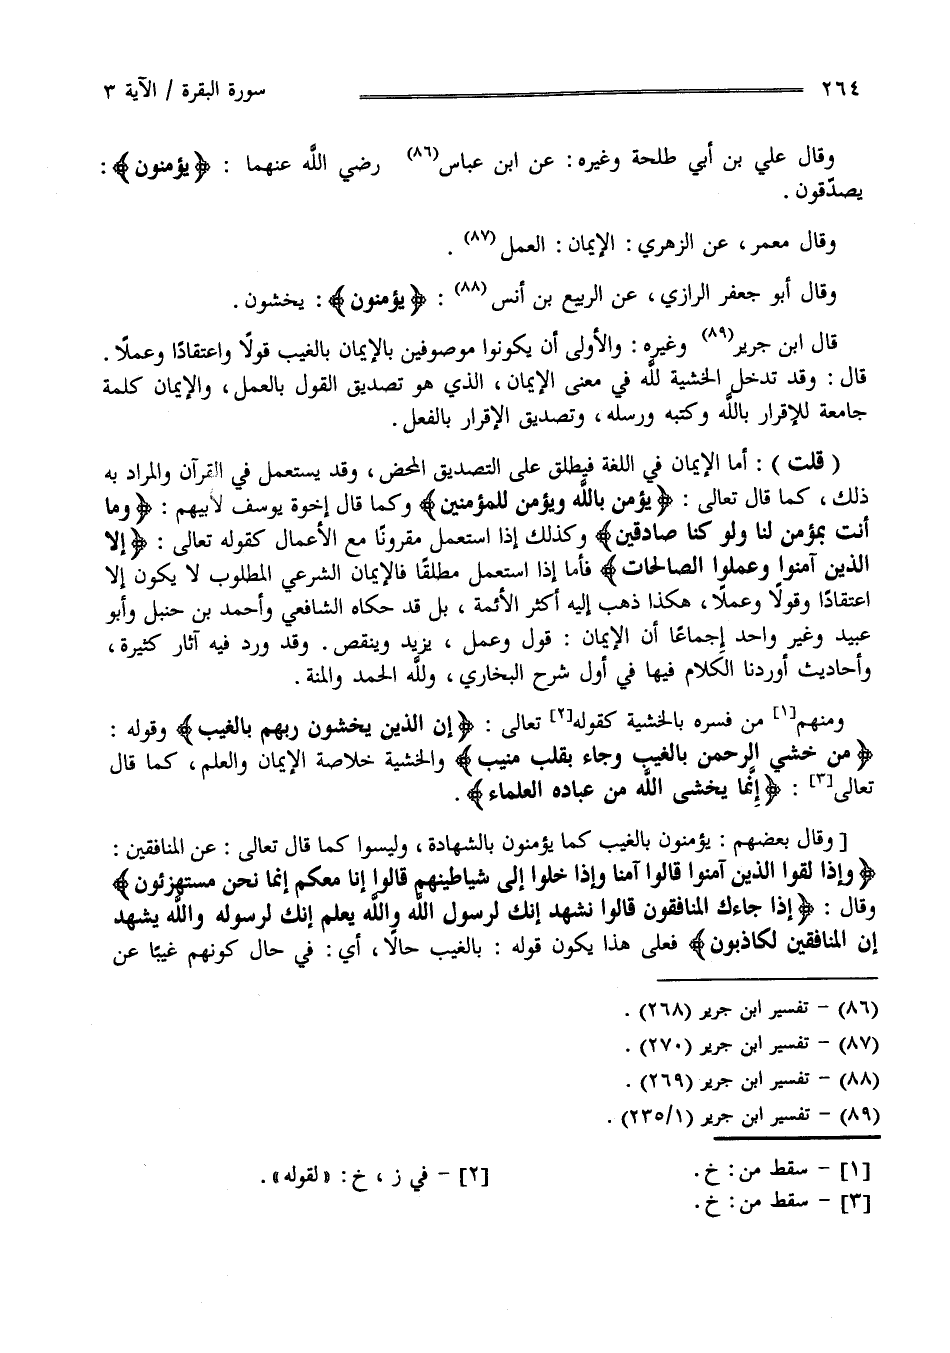 ٢٦٤ سورة البقرة / الآية ٣
وقال علي بن أبي طلحة وغيره : عن ابن عباس(٨٦) رضي اللَّه عنهما : ﴿يؤمنون﴾ :
يصدّقون .
وقال معمر ، عن الزهري : الإيمان : العمل(٨٧) .
وقال أبو جعفر الرازي ، عن الربيع بن أنس(٨٨) : ﴿يؤمنون﴾ : يخشون .
قال ابن جرير(٨٩) وغيره : والأولى أن يكونوا موصوفين بالإيمان بالغيب قولًا واعتقادًا وعملًا .
قال : وقد تدخل الخشية للَّه في معنى الإيمان ، الذي هو تصديق القول بالعمل ، والإيمان كلمة
جامعة للإقرار باللَّه وكتبه ورسله ، وتصديق الإقرار بالفعل .
( قلت ) : أما الإيمان في اللغة فيطلق على التصديق المحض ، وقد يستعمل في القرآن والمراد به
ذلك ، كما قال تعالى : ﴿يؤمن باللَّه ويؤمن للمؤمنين﴾ وكما قال إخوة يوسف لأبيهم : ﴿وما
أنت بمؤمن لنا ولو كنا صادقين﴾ وكذلك إذا استعمل مقرونًا مع الأعمال كقوله تعالى : ﴿إلا
الذين آمنوا وعملوا الصالحات﴾ فأما إذا استعمل مطلقًا فالإيمان الشرعي المطلوب لا يكون إلا
اعتقادًا وقولًا وعملًا ، هكذا ذهب إليه أكثر الأئمة ، بل قد حكاه الشافعي وأحمد بن حنبل وأبو
عبيد وغير واحد إجماعًا أن الإيمان : قول وعمل ، يزيد وينقص . وقد ورد فيه آثار كثيرة ،
وأحاديث أوردنا الكلام فيها في أول شرح البخاري ، وللَّه الحمد والمنة .
ومنهم[١] من فسره بالخشية كقوله[٢] تعالى : ﴿إن الذين يخشون ربهم بالغيب﴾ وقوله :
﴿من خشي الرحمن بالغيب وجاء بقلب منيب﴾ والخشية خلاصة الإيمان والعلم ، كما قال
تعالى[٣] : ﴿إنَّما يخشى اللَّه من عباده العلماء﴾ .
[ وقال بعضهم : يؤمنون بالغيب كما يؤمنون بالشهادة ، وليسوا كما قال تعالى : عن المنافقين :
﴿وإذا لقوا الذين آمنوا قالوا آمنا وإذا خلوا إلى شياطينهم قالوا إنا معكم إنما نحن مستهزئون﴾
وقال : ﴿إذا جاءك المنافقون قالوا نشهد إنك لرسول اللَّه واللَّه يعلم إنك لرسوله واللَّه يشهد
إن المنافقين لكاذبون﴾ فعلى هذا يكون قوله : بالغيب حالًا ، أي : في حال كونهم غيبًا عن
(٨٦) - تفسير ابن جرير (٢٦٨) .
(٨٧) - تفسير ابن جرير (٢٧٠) .
(٨٨) - تفسير ابن جرير (٢٦٩) .
(٨٩) - تفسير ابن جرير (٢٣٥/١) .
[١] - سقط من : خ . [٢] - في ز ، خ : «لقوله» .
[٣] - سقط من : خ .